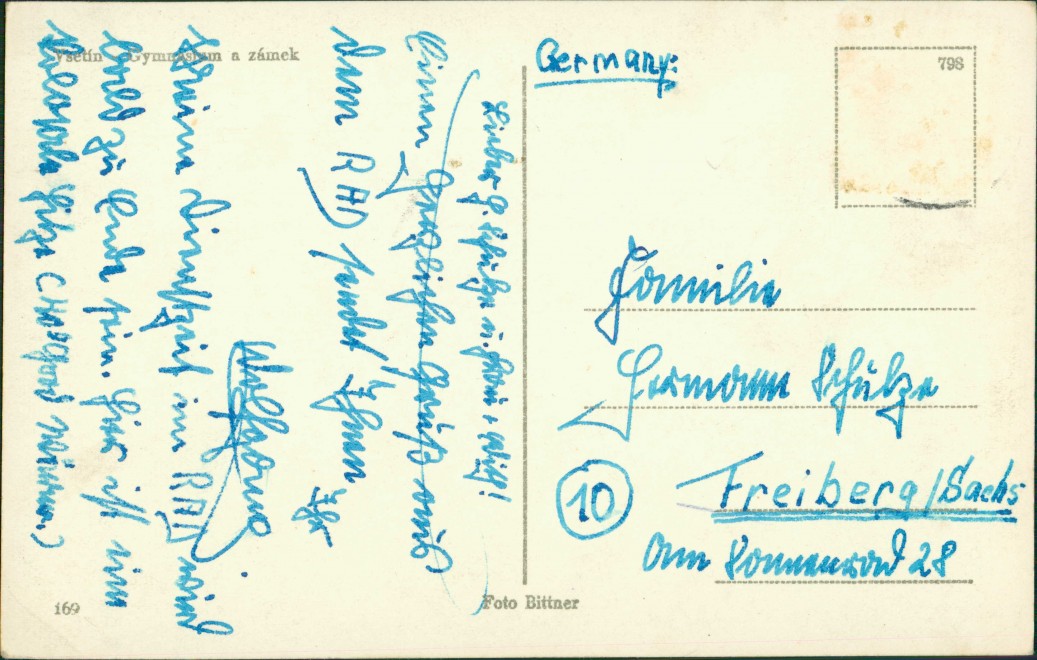 Vsetín Gymnasium a zámek
Lieber H. Schulze u. Frau + allig!
Einen herzlichen Gruß aus
dem RAD sendet Ihnen
Ihr
Wolfgang
Meine Dienstzeit im RAD wird
bald zu Ende sein. Hier ist eine
Hitze
Germany:
798
Familie
Hermann Schulze
10
Freiberg/Sachs
Am Sonnenrad 28
169
Foto Bittner